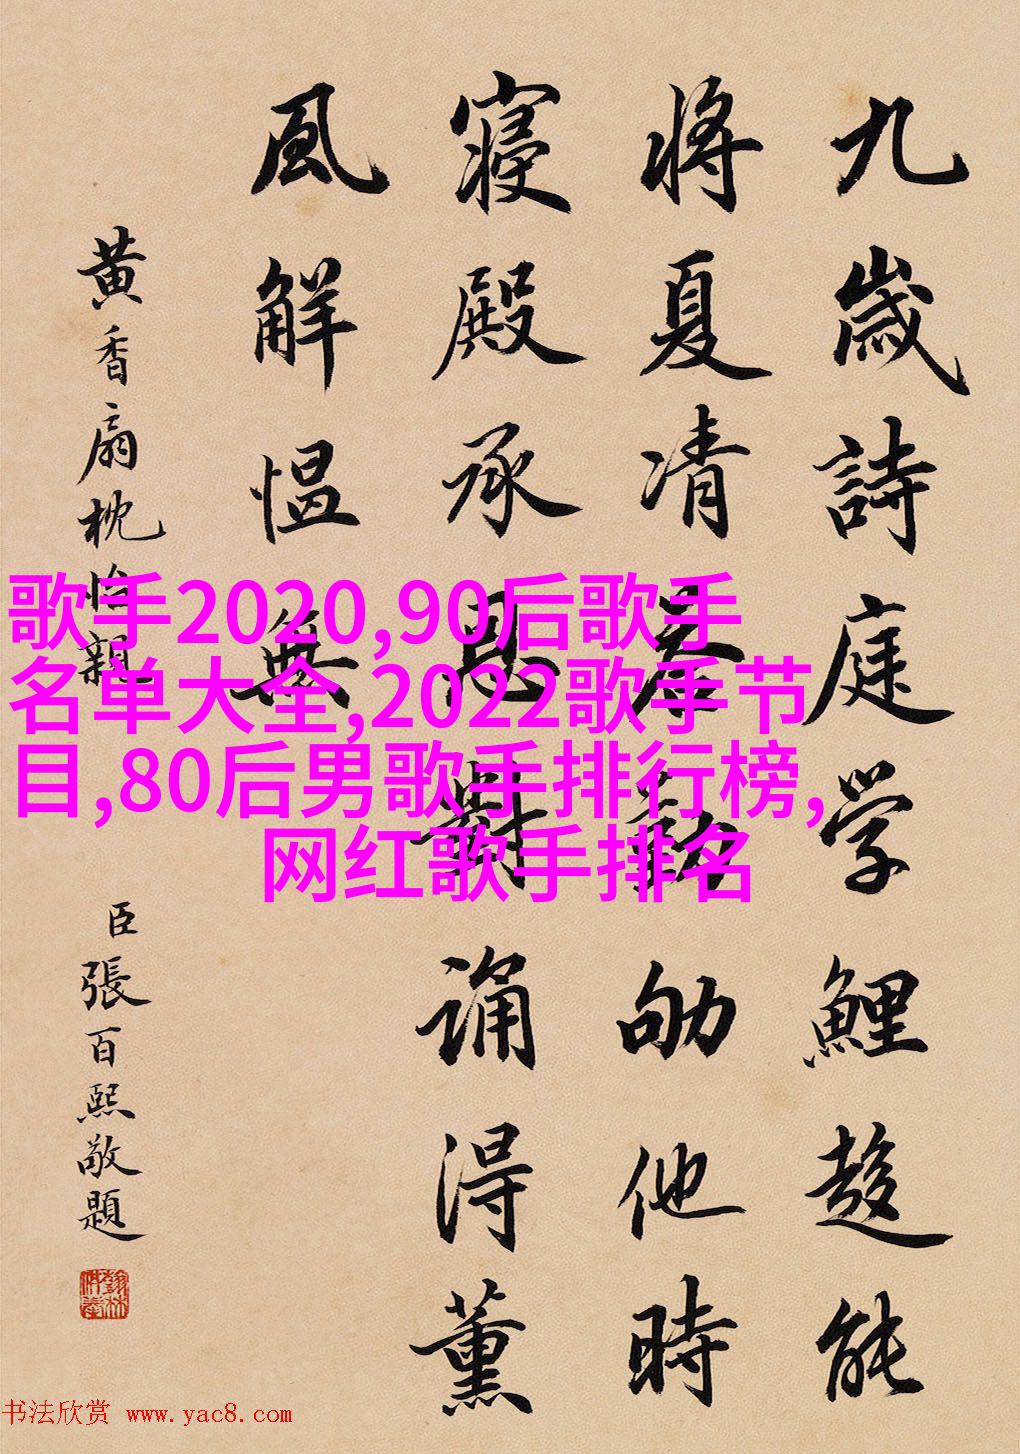 九歲詩庭学鯉趍能
將夏凊奉勤劬他時
寢殿承恩對誦得薰
風解慍無
黃香扇枕怡親
臣張百熙敬題
歌手2020,90后歌手
名单大全,2022歌手节
目,80后男歌手排行榜,
网红歌手排名
书法欣赏 www.yac8.com